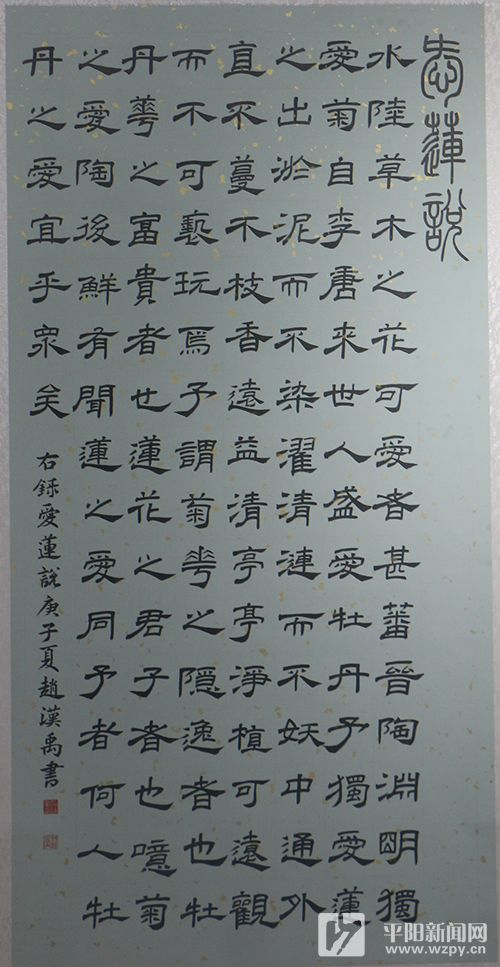 愛蓮說
水陸草木之花可愛者甚蕃晉陶淵明獨
愛菊自李唐來世人盛愛牡丹予獨愛蓮
之出淤泥而不染濯清漣而不妖中通外
直不蔓不枝香遠益清亭亭淨植可遠觀
而不可褻玩焉予謂菊華之隱逸者也牡
丹華之富貴者也蓮花之君子者也噫菊
之愛陶後鮮有聞蓮之愛同予者何人牡
丹之愛宜乎眾矣
右錄愛蓮說庚子夏趙漢禹書
平阳新闻网
www.wzpy.cn